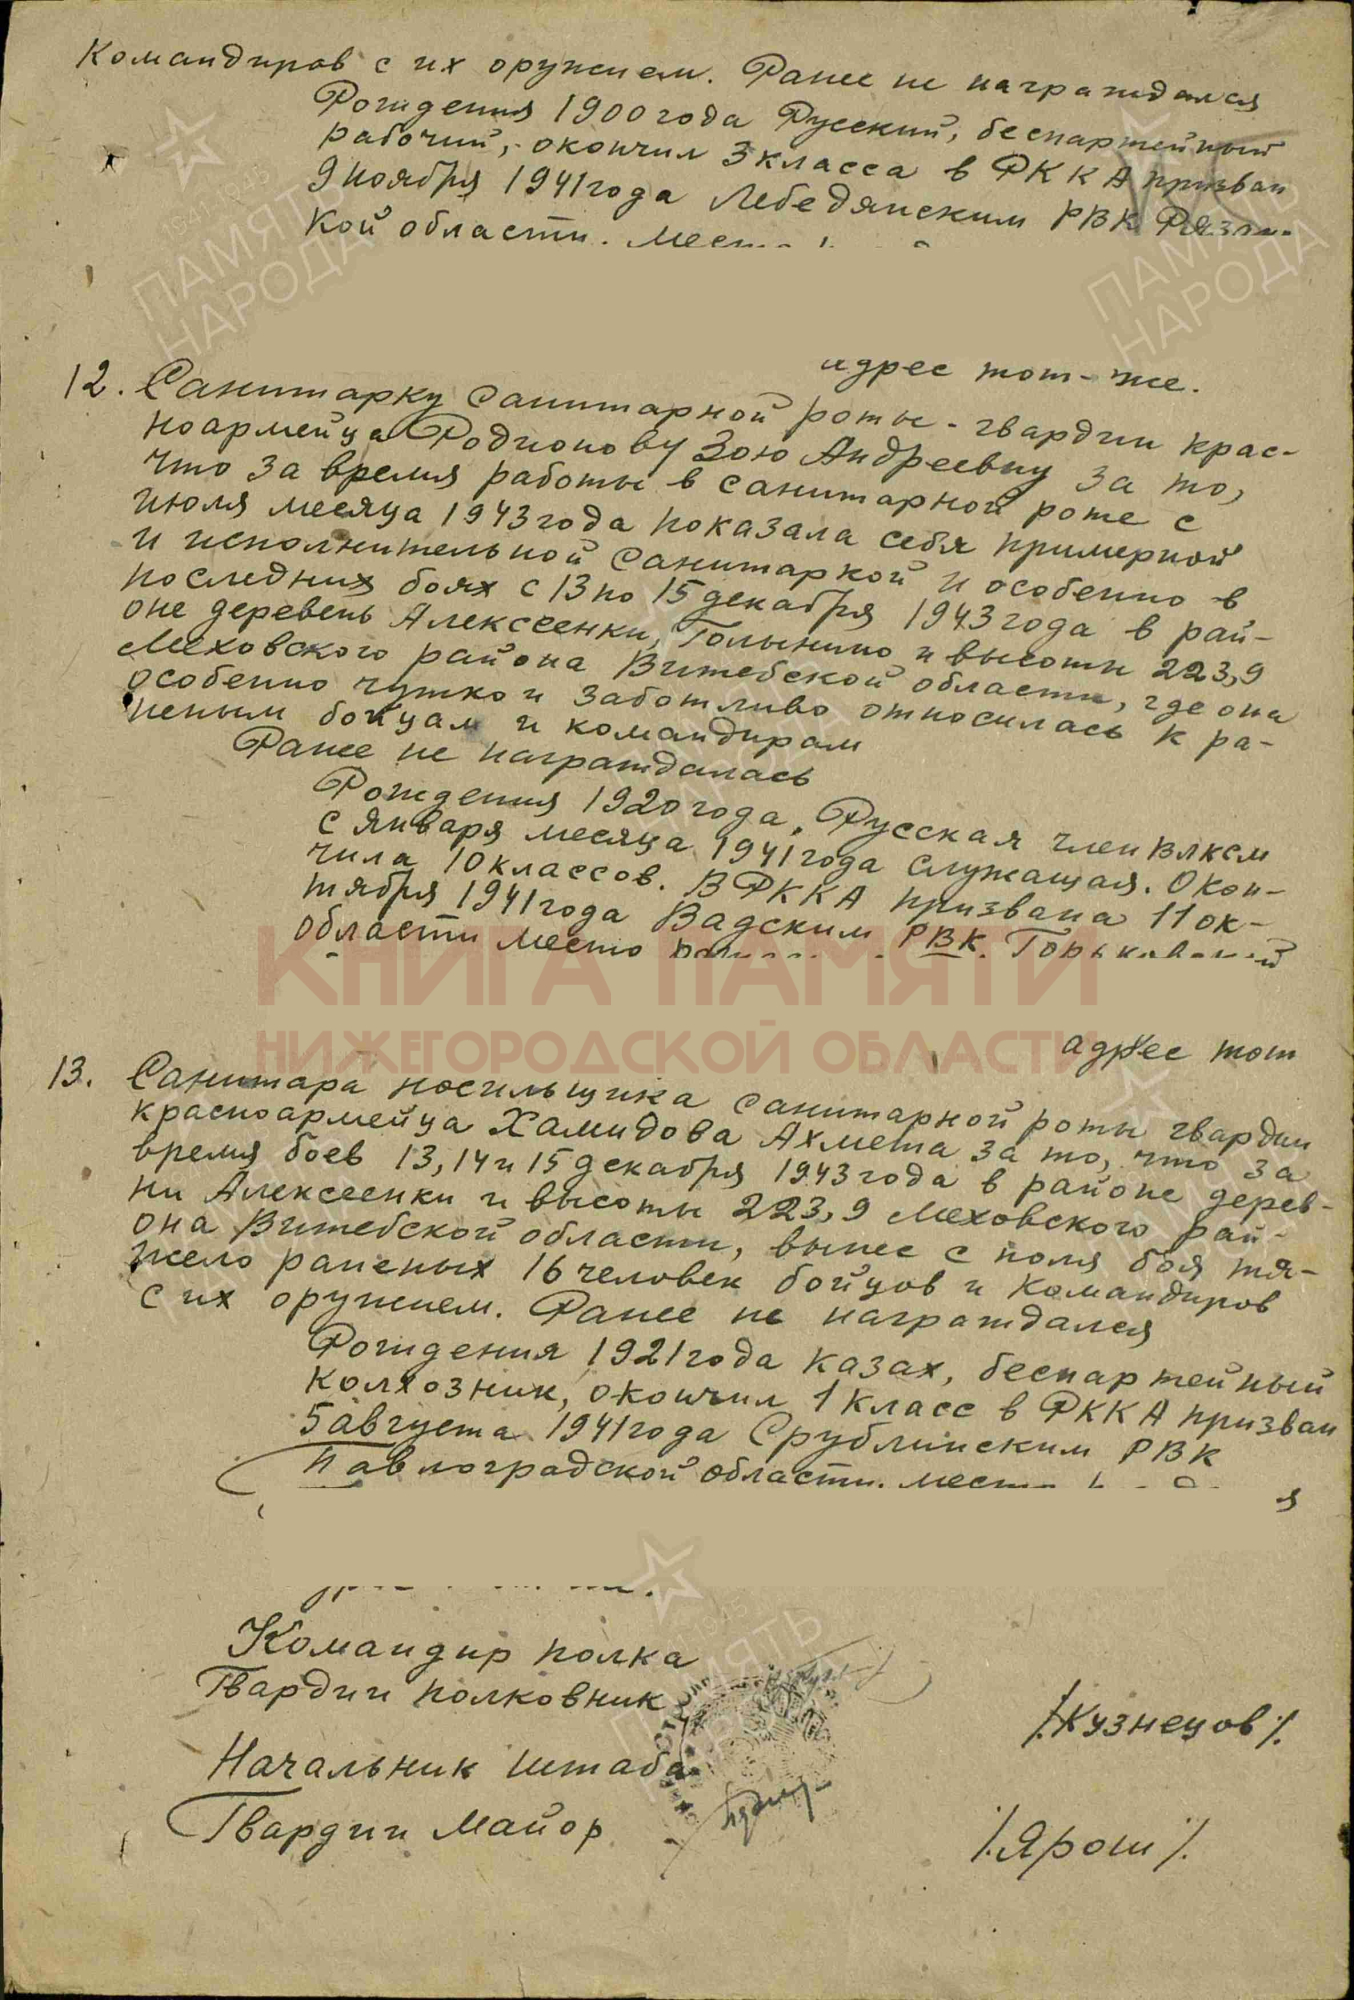 Командиров с их оружием. Ранее не награждался
Рождения 1900 года Русский, беспартейный
рабочий, окончил 3 класса в РККА призван
9 ноября 1941 года Лебедянским РВК Рязан-
кой области.
адрес тот-же.
12. Санитарку санитарной роты - гвардии крас-
ноармейца Родионову Зою Андреевну за то,
что за время работы в санитарной роте с
июля месяца 1943 года показала себя примерной
и исполнительной санитаркой и особенно в
последних боях с 13 по 15 декабря 1943 года в рай-
оне деревень Алексеенки, Голынино и высоты 223,9
Меховского района Витебской области, где она
особенно чутко и заботливо относилась к ра-
неным бойцам и командирам
Ранее не награждалась
Рождения 1920 года. Русская член ВЛКСМ
с января месяца 1941 года служащая. Окон-
чила 10 классов. В РККА призвана 11 ок-
тября 1941 года Вадским РВК Горьковской
области место
КНИГА ПАМЯТИ
НИЖЕГОРОДСКОЙ ОБЛАСТИ
адрес тот
13. Санитара носильщика санитарной роты гвардии
красноармейца Хамидова Ахмета за то, что за
время боев 13, 14 и 15 декабря 1943 года в районе дерев-
ни Алексеенки и высоты 223,9 Меховского рай-
она Витебской области, вынес с поля боя тя-
жело раненых 16 человек бойцов и командиров
с их оружием. Ранее не награждался
Рождения 1921 года казах, беспартейный
колхозник, окончил 1 класс в РККА призван
5 августа 1941 года Срублинским РВК
Павлоградской области.
Командир полка
Гвардии полковник
/.Кузнецов/.
Начальник штаба
Гвардии Майор
/.Ярош/.
ПАМЯТЬ
НАРОДА
ПАМЯТЬ
НАРОДА